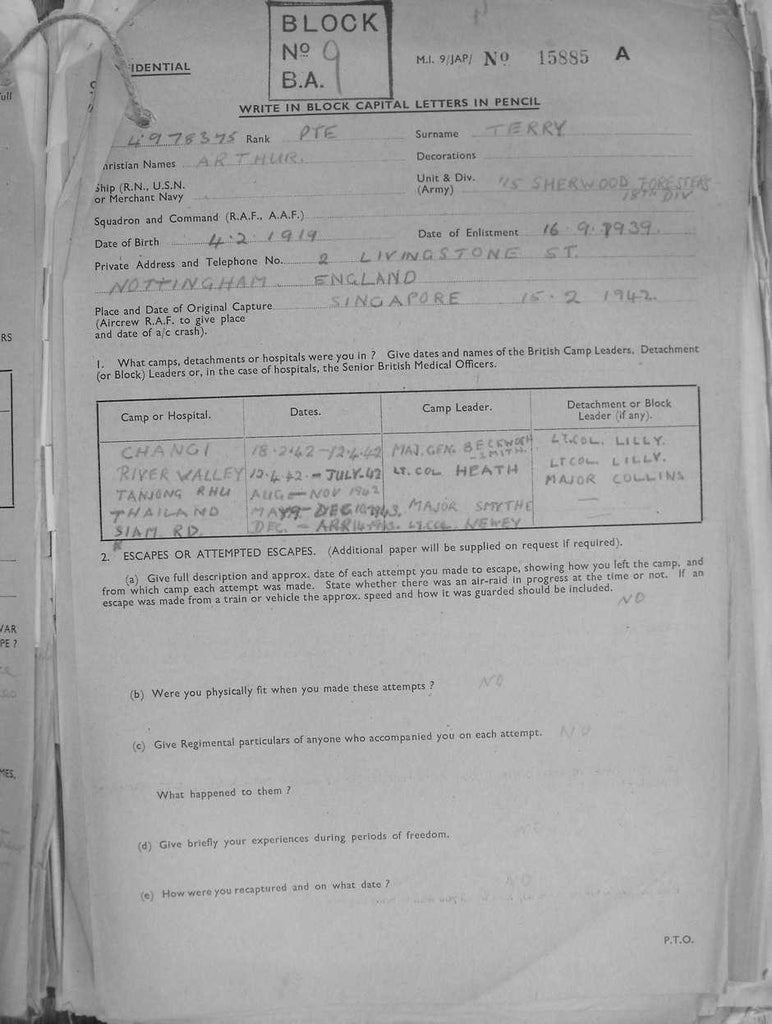 BLOCK
No 9
B.A.
IDENTIAL
M.I. 9/JAP/ No 15885 A
WRITE IN BLOCK CAPITAL LETTERS IN PENCIL
4978375 Rank PTE Surname TERRY
hristian Names ARTHUR. Decorations
Ship (R.N., U.S.N. or Merchant Navy
Unit & Div. (Army) 1/5 SHERWOOD FORESTERS
18TH DIV
Squadron and Command (R.A.F., A.A.F.)
Date of Birth 4.2.1919 Date of Enlistment 16.9.1939.
Private Address and Telephone No. 2 LIVINGSTONE ST.
NOTTINGHAM ENGLAND
Place and Date of Original Capture SINGAPORE 15.2 1942.
(Aircrew R.A.F. to give place
and date of a/c crash).
1. What camps, detachments or hospitals were you in ? Give dates and names of the British Camp Leaders, Detachment
(or Block) Leaders or, in the case of hospitals, the Senior British Medical Officers.
Camp or Hospital. Dates. Camp Leader. Detachment or Block
Leader (if any).
CHANGI 18.2.42-12.4.42 MAJ. GEN. BECKWITH SMITH. LT.COL. LILLY.
RIVER VALLEY 12.4.42-JULY.42 LT. COL HEATH LT COL LILLY.
TANJONG RHU AUG-NOV 1942 MAJOR COLLINS
THAILAND DEC MAJOR SMYTHE
SIAM RD. DEC. - LT.COL. NEWEY
2. ESCAPES OR ATTEMPTED ESCAPES. (Additional paper will be supplied on request if required).
(a) Give full description and approx. date of each attempt you made to escape, showing how you left the camp, and
from which camp each attempt was made. State whether there was an air-raid in progress at the time or not. If an
escape was made from a train or vehicle the approx. speed and how it was guarded should be included.
NO
(b) Were you physically fit when you made these attempts ? NO
(c) Give Regimental particulars of anyone who accompanied you on each attempt. NO
What happened to them ?
(d) Give briefly your experiences during periods of freedom.
(e) How were you recaptured and on what date ? NO
P.T.O.